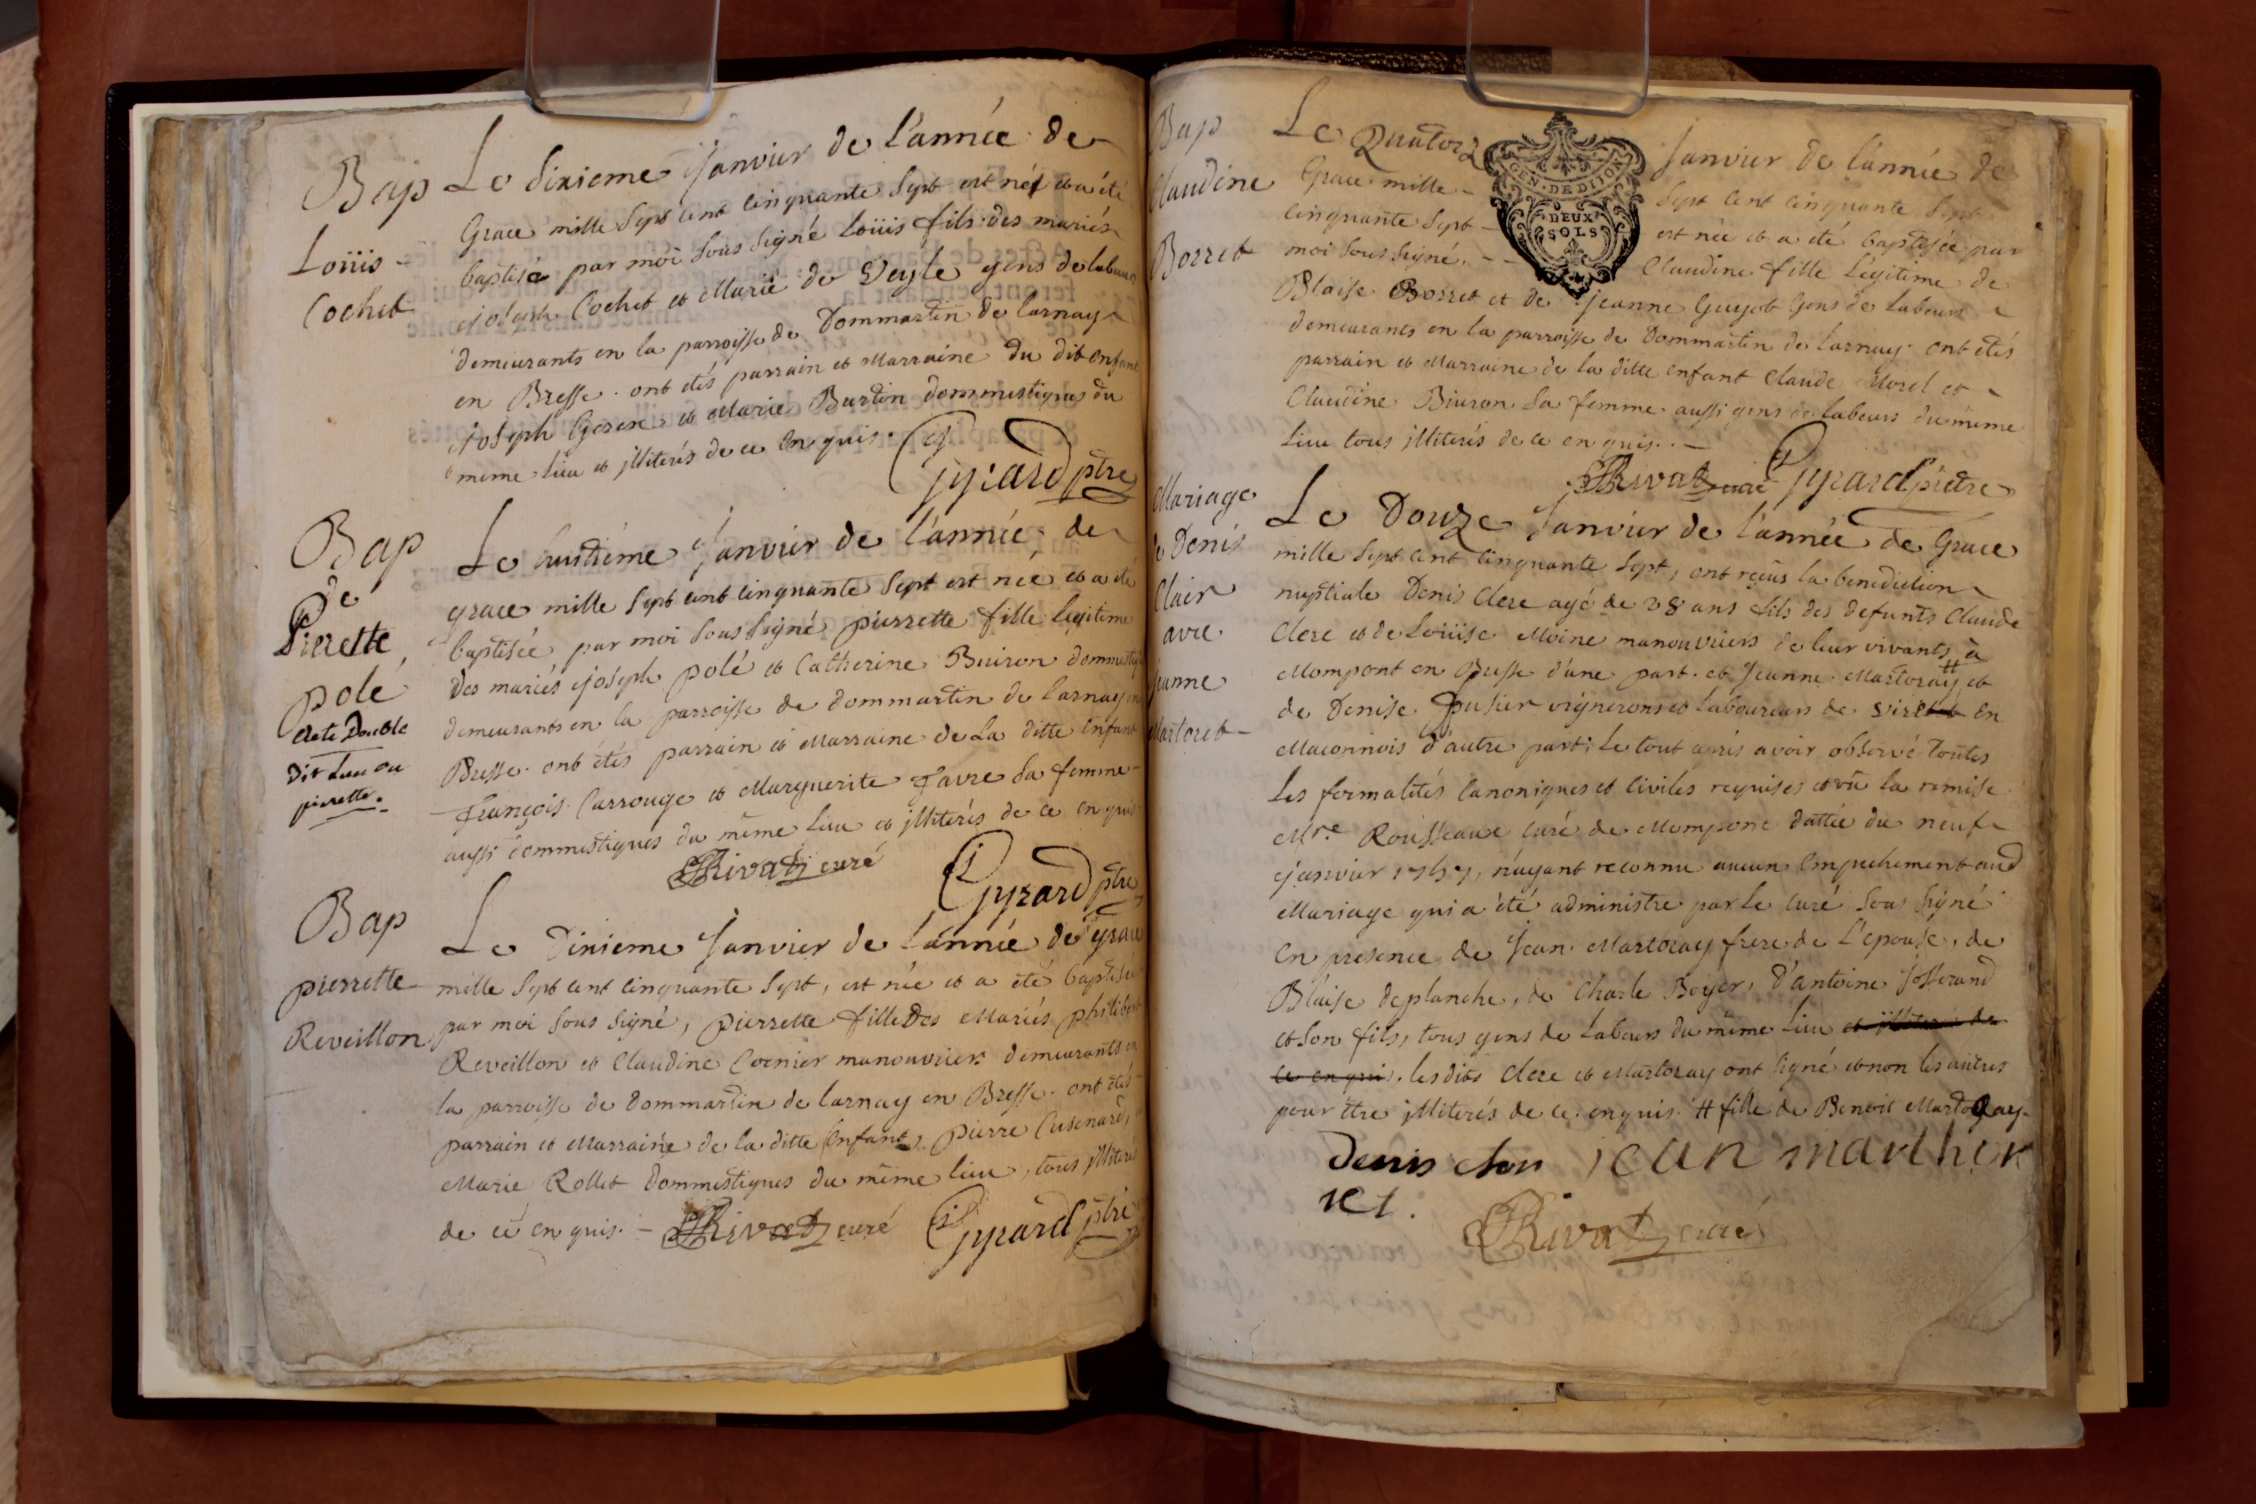 Bap
Loüis
Cochet
Le Sixieme Janvier de l'année de
Grace mille Sept cent cinquante Sept est né et a été
baptisé par moi Sous Signé Loüis fils des mariés
Joseph Cochet et Marie de Veyle gens de labeur
demeurants en la parroisse de Dommartin de Larnay
en Bresse. ont étés parrain et Marraine du dit enfant
Joseph et Marie Burdin dommestiques du
meme lieu et illiterés de ce enquis.
Gyrard ptre
Bap
de
Pierrette
polé
acte Double
pierrette.
Le huitième Janvier de l'année de
grace mille Sept cent cinquante Sept est née et a été
baptisée par moi Sous Signé, pierrette fille Legitime
des mariés Joseph polé et Catherine Buiron
demeurants en la parroisse de dommartin de Larnay en
Bresse. ont étés parrain et Marraine de La ditte Enfant
François Carrouge et Marguerite Favre Sa femme
aussi dommestiques du même Lieu et illiterés de ce enquis
Rivat curé
Gyrard ptre
Bap
pierrette
Reveillon
Le Dixieme Janvier de L'année de grace
mille Sept cent cinquante Sept, est née et a été baptisée
par moi Sous Signé, Pierrette fille Des Mariés philibert
Reveillon et Claudine Cornier manouvriers demeurants en
la parroisse de Dommartin de Larnay en Bresse. ont étés
parrain et Marraine de la ditte Enfant. Pierre Cusenard,
Marie Rollet Dommestiques du même lieu, tous illiterés
de ce enquis. Rivat curé Gyrard ptre
Bap
Claudine
Borret
GEN. DE DIJON
DEUX
SOLS
Le Quatorz Janvier de L'année de
Grace mille Sept Cent cinquante Sept
cinquante Sept est née et a été baptisée par
moi Sous Signé. Claudine fille Légitime de
Blaise Borret et de Jeanne Guyot Gens de Labeurs
demeurants en la parroisse de Dommartin de Larnay ont étés
parrain et Marraine de la ditte enfant Claude Morel et
Claudine Biuron Sa femme aussi gens de labeurs du même
Lieu tous illiterés de ce enquis.
Rivat curé Gyrard prêtre
Mariage
de Denis
Clair
avec
jeanne
Martoret
Le Douze Janvier de L'année de Grace
mille Sept cent cinquante Sept, ont reçus la benediction
nuptiale Denis Clere agé de 28 ans fils des defunts Claude
Clere et de Loüise Moine manouvriers de leur vivants à
Mompont en Bresse d'une part. et Jeanne Martoray # et
de Denise Pusier vignerons et laboureurs de en
Maconnois d'autre part; Le tout après avoir observé Toutes
Les formalités Canoniques et Civiles requises et vû la remise
Mre Rousseaux curé de Mompont dattée du neuf
janvier 1757, n'ayant reconnu aucun Empechement aud
Mariage qui a été administre par Le Curé Sous Signé
En presence de Jean Martoray frere de L'epouse, de
Blaise deplanche, de Charle Boyer, d'antoine Josserand
et Son fils, tous gens de Labeurs du même Lieu et illiterés de
ce enquis. lesdits Clere et Martoray ont Signé et non les autres
pour être illiterés de ce enquis. # fille de Benoit Martoray
Denis jean marther
ret.
Rivat curé